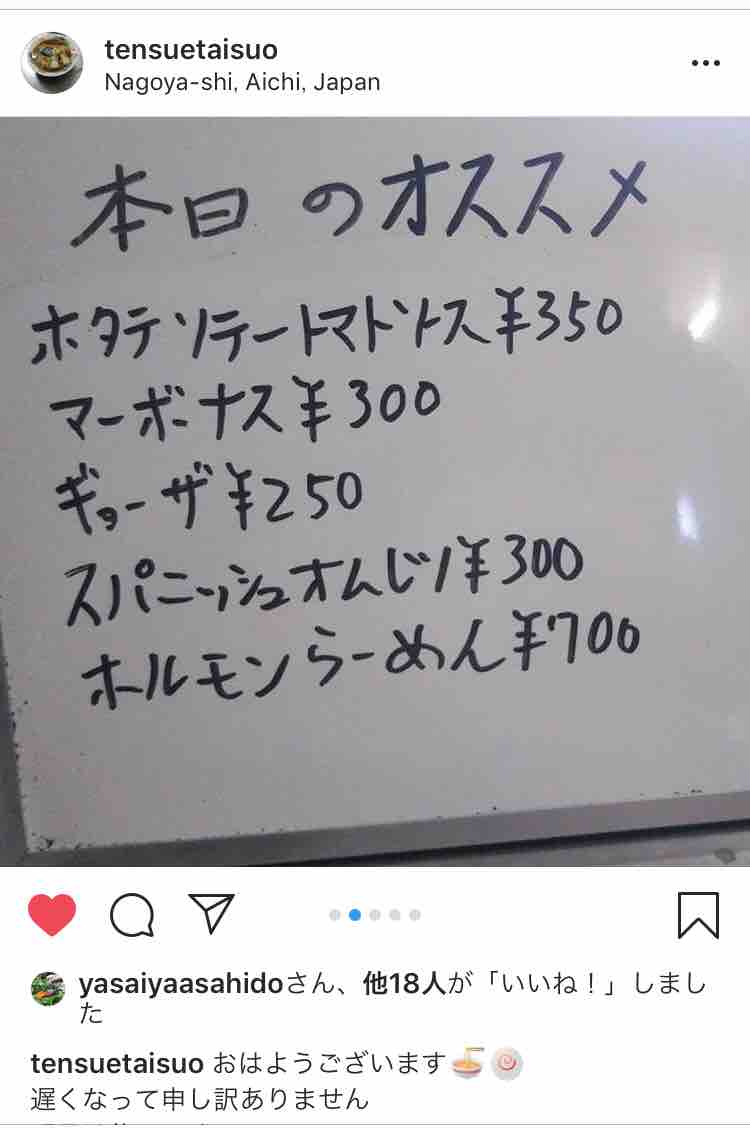 tensuetaisuo
Nagoya-shi, Aichi, Japan
本日のオススメ
ホタテソテートマトソース¥350
マーボーナス¥300
ギョーザ¥250
スパニッシュオムレツ¥300
ホルモンらーめん¥700
yasaiyaasahidoさん、他18人が「いいね！」しまし
た
tensuetaisuo おはようございます🍜🍥
遅くなって申し訳ありません